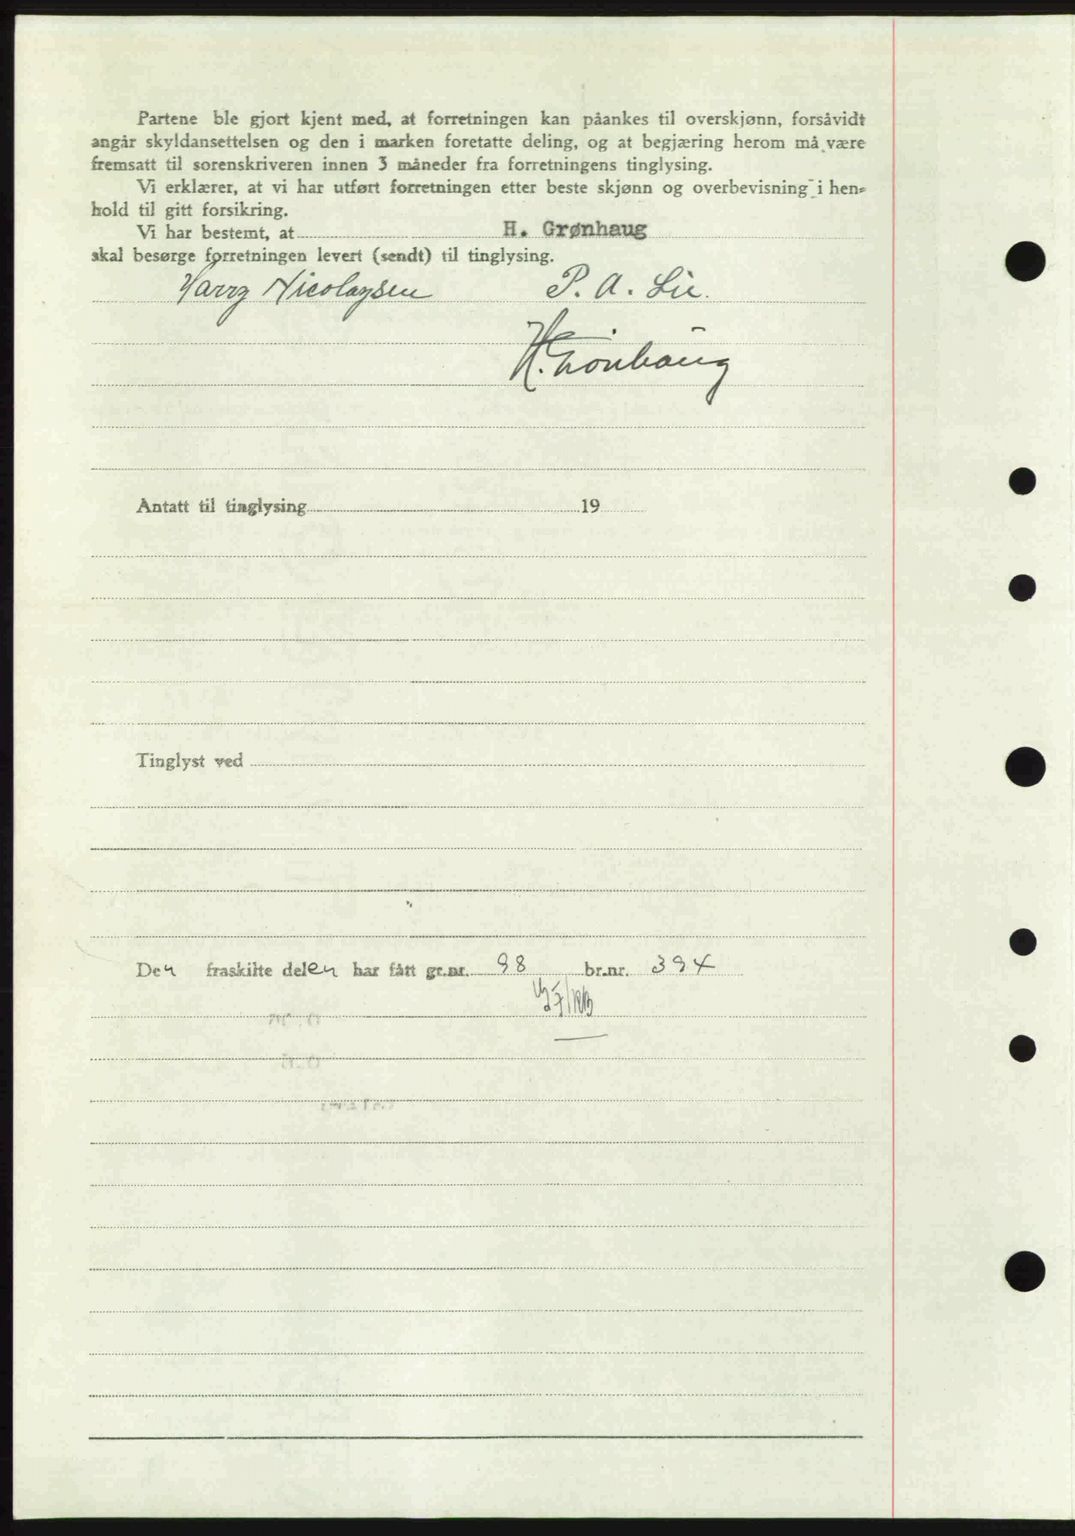 Partene ble gjort kjent med, at forretningen kan påankes til overskjønn, forsåvidt
angår skyldansettelsen og den i marken foretatte deling, og at begjæring herom må være
fremsatt til sorenskriveren innen 3 måneder fra forretningens tinglysing.
Vi erklærer, at vi har utført forretningen etter beste skjønn og overbevisning i hen-
hold til gitt forsikring.
Vi har bestemt, at H. Grønhaug
skal besørge forretningen levert (sendt) til tinglysing.
Harry Nicolaysen P. A. Lie.
H. Grönhaug
Antatt til tinglysing 19
Tinglyst ved
Den fraskilte delen har fått gr.nr. 98 br.nr. 394